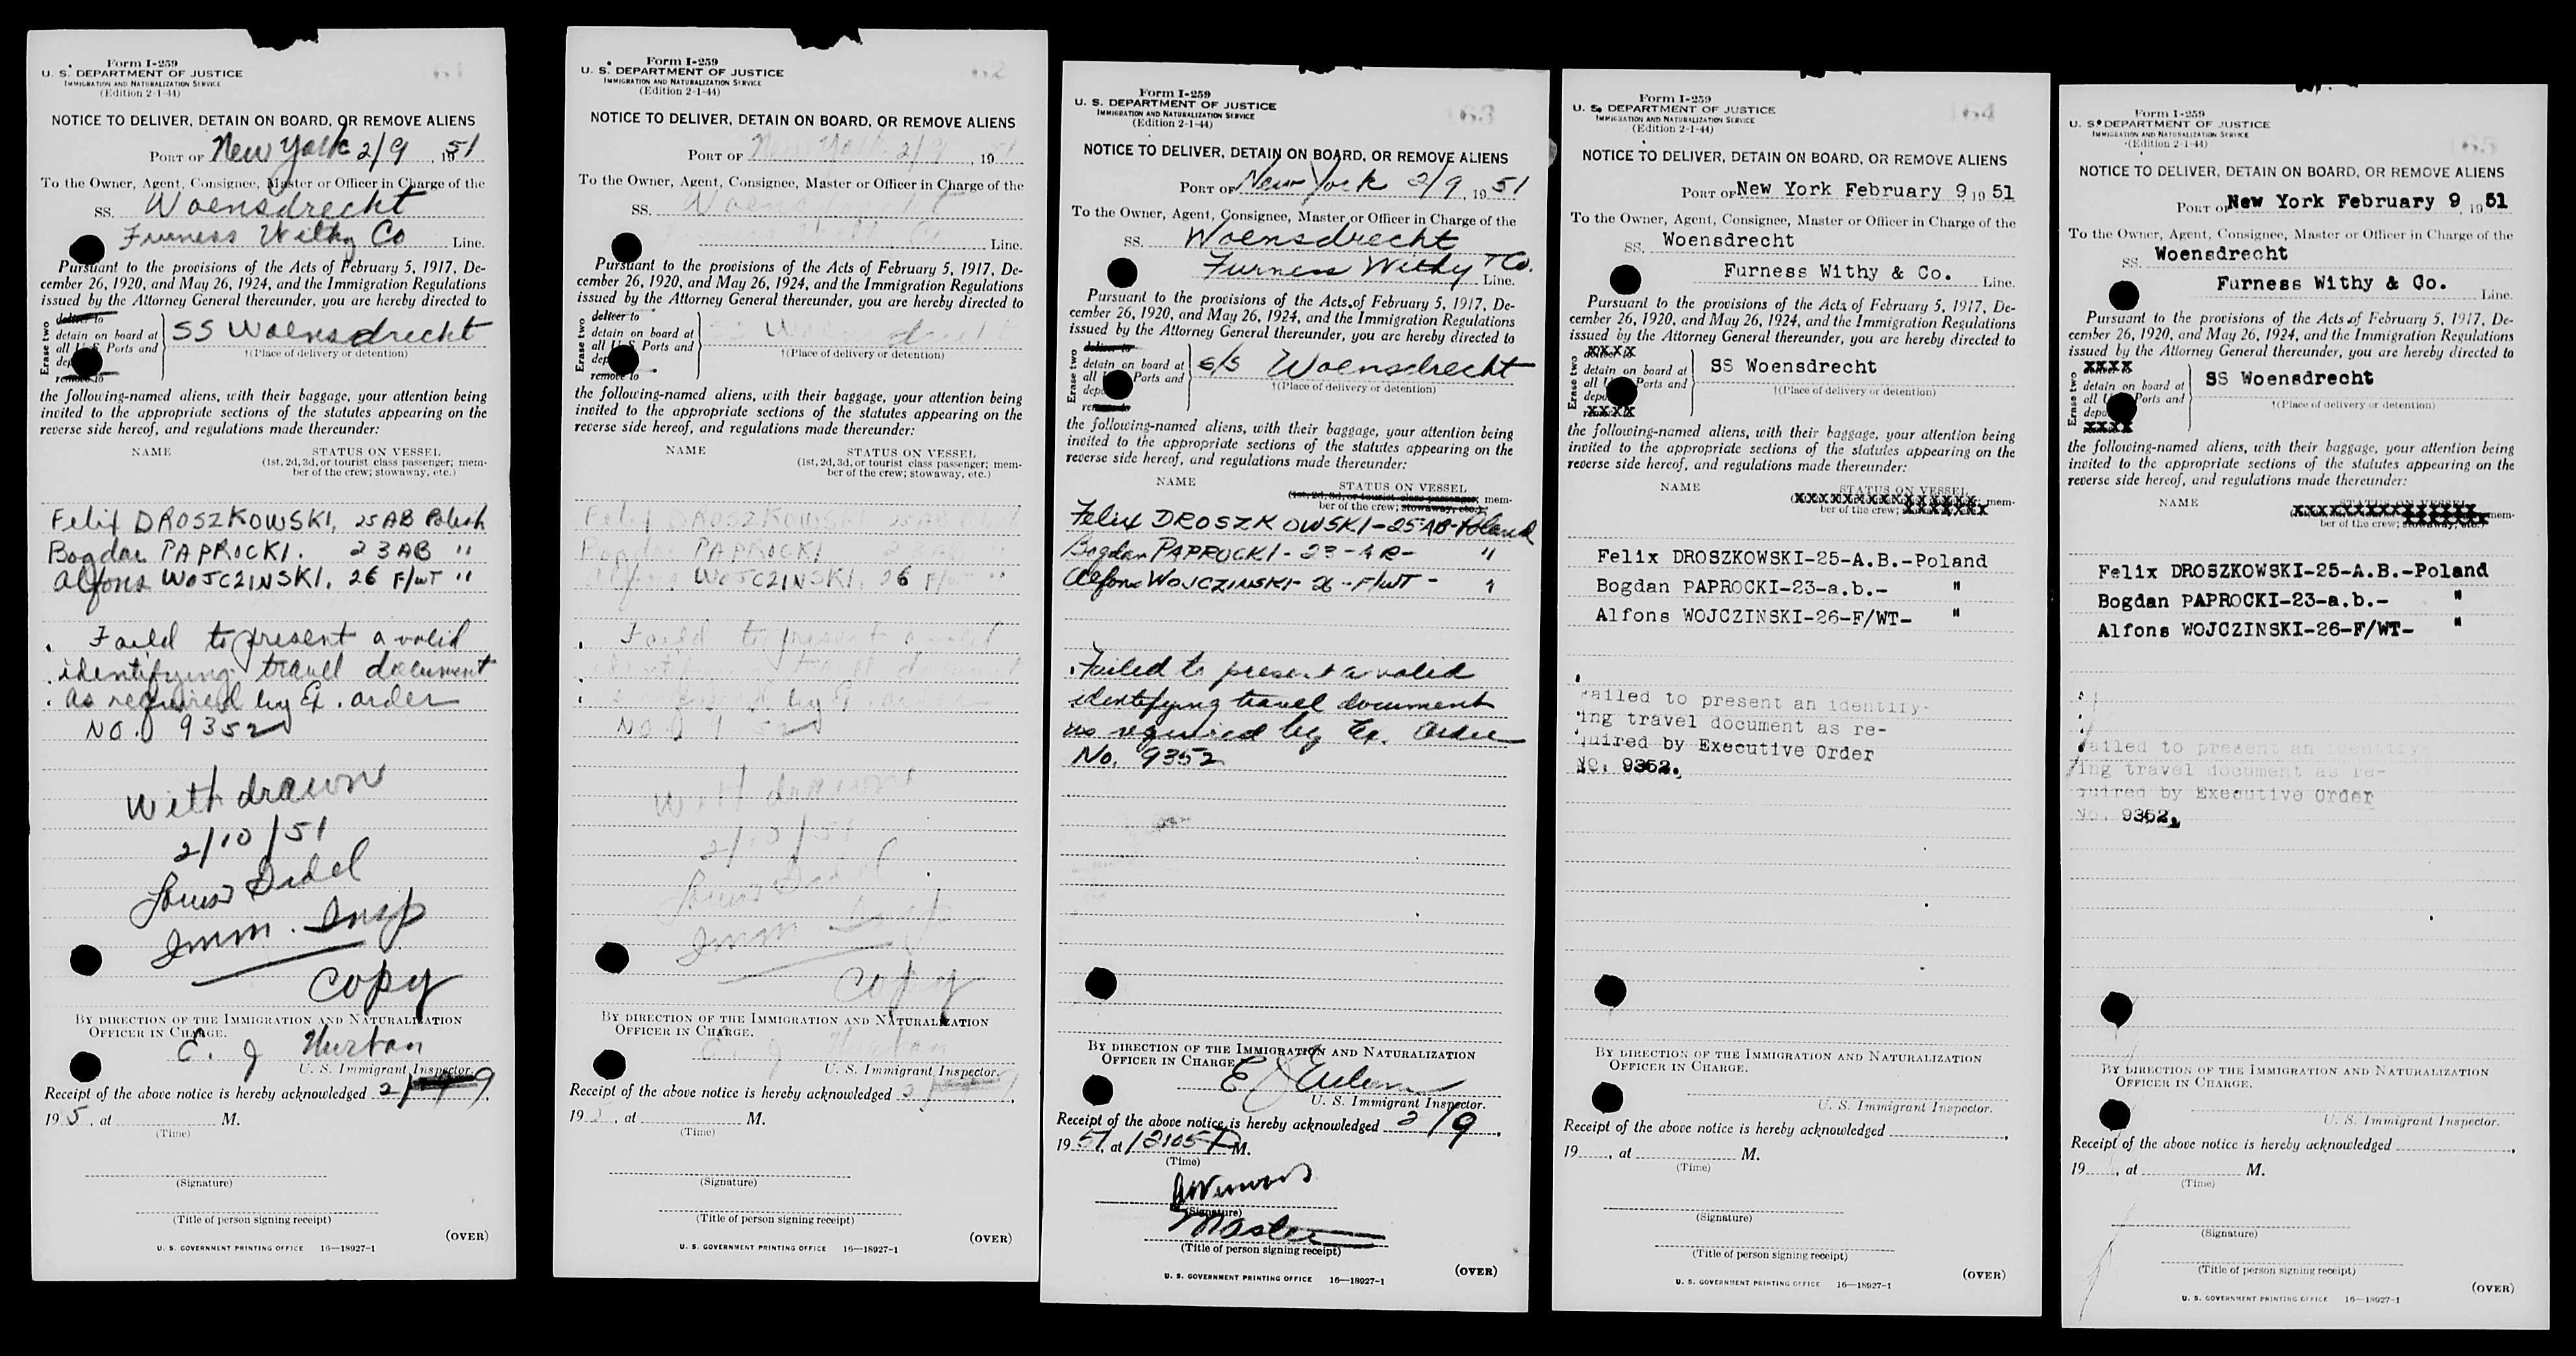 Form I-259
U. S. DEPARTMENT OF JUSTICE
IMMIGRATION AND NATURALIZATION SERVICE
(Edition 2-1-44)
NOTICE TO DELIVER, DETAIN ON BOARD, OR REMOVE ALIENS
PORT OF New York 2/9, 1951
To the Owner, Agent, Consignee, Master or Officer in Charge of the
SS. Woensdrecht
Furness Withy Co Line.
Pursuant to the provisions of the Acts of February 5, 1917, De-
cember 26, 1920, and May 26, 1924, and the Immigration Regulations
issued by the Attorney General thereunder, you are hereby directed to
Erase two
deliver to
detain on board at
all U.S. Ports and
dep
remove to
SS Woensdrecht
†(Place of delivery or detention)
the following-named aliens, with their baggage, your attention being
invited to the appropriate sections of the statutes appearing on the
reverse side hereof, and regulations made thereunder:
NAME STATUS ON VESSEL
(1st, 2d, 3d, or tourist class passenger; mem-
ber of the crew; stowaway, etc.)
Felix DROSZKOWSKI, 25 AB Polish
Bogdan PAPROCKI. 23 AB "
Alfons WOJCZINSKI, 26 F/WT "
Faild to present a valid
identifying travel document
as required by Ex. order
NO. 9352
Withdrawn
2/10/51
Imm. Insp
Copy
BY DIRECTION OF THE IMMIGRATION AND NATURALIZATION
OFFICER IN CHARGE.
E. J
U. S. Immigrant Inspector.
Receipt of the above notice is hereby acknowledged 2/9,
195, at M.
(Time)
(Signature)
(Title of person signing receipt)
(OVER)
U. S. GOVERNMENT PRINTING OFFICE 16—18927-1
Form I-259
U. S. DEPARTMENT OF JUSTICE
IMMIGRATION AND NATURALIZATION SERVICE
(Edition 2-1-44)
NOTICE TO DELIVER, DETAIN ON BOARD, OR REMOVE ALIENS
PORT OF New York 2/9, 1951
To the Owner, Agent, Consignee, Master or Officer in Charge of the
SS. Woensdrecht
Line.
Pursuant to the provisions of the Acts of February 5, 1917, De-
cember 26, 1920, and May 26, 1924, and the Immigration Regulations
issued by the Attorney General thereunder, you are hereby directed to
Erase two
deliver to
detain on board at
all U S Ports and
dep
remove to
†(Place of delivery or detention)
the following-named aliens, with their baggage, your attention being
invited to the appropriate sections of the statutes appearing on the
reverse side hereof, and regulations made thereunder:
NAME STATUS ON VESSEL
(1st, 2d, 3d, or tourist class passenger; mem-
ber of the crew; stowaway, etc.)
Felix DROSZKOWSKI 25 AB
Bogdan PAPROCKI 23 AB "
WOJCZINSKI, 26 F/WT "
Faild to present a valid
by
NO.
Withdrawn
2/10/51
Imm Insp
Copy
BY DIRECTION OF THE IMMIGRATION AND NATURALIZATION
OFFICER IN CHARGE.
E. J
U. S. Immigrant Inspector.
Receipt of the above notice is hereby acknowledged
195, at M.
(Time)
(Signature)
(Title of person signing receipt)
(OVER)
U. S. GOVERNMENT PRINTING OFFICE 16—18927-1
Form I-259
U. S. DEPARTMENT OF JUSTICE
IMMIGRATION AND NATURALIZATION SERVICE
(Edition 2-1-44)
NOTICE TO DELIVER, DETAIN ON BOARD, OR REMOVE ALIENS
PORT OF New York 2/9, 1951
To the Owner, Agent, Consignee, Master or Officer in Charge of the
SS. Woensdrecht
Furness Withy + Co. Line.
Pursuant to the provisions of the Acts of February 5, 1917, De-
cember 26, 1920, and May 26, 1924, and the Immigration Regulations
issued by the Attorney General thereunder, you are hereby directed to
Erase two
deliver to
detain on board at
all Ports and
depo
remove to
S/S Woensdrecht
†(Place of delivery or detention)
the following-named aliens, with their baggage, your attention being
invited to the appropriate sections of the statutes appearing on the
reverse side hereof, and regulations made thereunder:
NAME STATUS ON VESSEL
(1st, 2d, 3d, or tourist class passenger; mem-
ber of the crew; stowaway, etc.)
Felix DROSZKOWSKI-25-AB-Poland
Bogdan PAPROCKI-23-AB- "
Alfons WOJCZINSKI-26-F/WT- "
Failed to present a valid
identifying travel document
as required by Ex. Order
No. 9352
BY DIRECTION OF THE IMMIGRATION AND NATURALIZATION
OFFICER IN CHARGE.
U. S. Immigrant Inspector.
Receipt of the above notice is hereby acknowledged 2/9,
1951, at 12105 P M.
(Time)
(Signature)
Master
(Title of person signing receipt)
(OVER)
U. S. GOVERNMENT PRINTING OFFICE 16—18927-1
Form I-259
U. S. DEPARTMENT OF JUSTICE
IMMIGRATION AND NATURALIZATION SERVICE
(Edition 2-1-44)
NOTICE TO DELIVER, DETAIN ON BOARD, OR REMOVE ALIENS
PORT OF New York February 9, 1951
To the Owner, Agent, Consignee, Master or Officer in Charge of the
SS. Woensdrecht
Furness Withy & Co. Line.
Pursuant to the provisions of the Acts of February 5, 1917, De-
cember 26, 1920, and May 26, 1924, and the Immigration Regulations
issued by the Attorney General thereunder, you are hereby directed to
Erase two
XXXX
detain on board at
all U Ports and
depo
XXXX
SS Woensdrecht
†(Place of delivery or detention)
the following-named aliens, with their baggage, your attention being
invited to the appropriate sections of the statutes appearing on the
reverse side hereof, and regulations made thereunder:
NAME STATUS ON VESSEL
(XXXXXXXXXXXXXXXX; mem-
ber of the crew; XXXXXXX
Felix DROSZKOWSKI-25-A.B.-Poland
Bogdan PAPROCKI-23-a.b.- "
Alfons WOJCZINSKI-26-F/WT- "
Failed to present an identify-
ing travel document as re-
quired by Executive Order
No. 9352.
BY DIRECTION OF THE IMMIGRATION AND NATURALIZATION
OFFICER IN CHARGE.
U. S. Immigrant Inspector.
Receipt of the above notice is hereby acknowledged ,
19 , at M.
(Time)
(Signature)
(Title of person signing receipt)
(OVER)
U. S. GOVERNMENT PRINTING OFFICE 16—18927-1
Form I-259
U. S. DEPARTMENT OF JUSTICE
IMMIGRATION AND NATURALIZATION SERVICE
(Edition 2-1-44)
NOTICE TO DELIVER, DETAIN ON BOARD, OR REMOVE ALIENS
PORT OF New York February 9, 1951
To the Owner, Agent, Consignee, Master or Officer in Charge of the
SS. Woensdrecht
Furness Withy & Co. Line.
Pursuant to the provisions of the Acts of February 5, 1917, De-
cember 26, 1920, and May 26, 1924, and the Immigration Regulations
issued by the Attorney General thereunder, you are hereby directed to
Erase two
XXXX
detain on board at
all U Ports and
depo
XXXX
SS Woensdrecht
†(Place of delivery or detention)
the following-named aliens, with their baggage, your attention being
invited to the appropriate sections of the statutes appearing on the
reverse side hereof, and regulations made thereunder:
NAME STATUS ON VESSEL
XXXXXXXXXXXXXXXX mem-
ber of the crew; XXXXXXX etc.)
Felix DROSZKOWSKI-25-A.B.-Poland
Bogdan PAPROCKI-23-a.b.- "
Alfons WOJCZINSKI-26-F/WT- "
Failed to present an identify-
ing travel document as re-
quired by Executive Order
No. 9352.
BY DIRECTION OF THE IMMIGRATION AND NATURALIZATION
OFFICER IN CHARGE.
U. S. Immigrant Inspector.
Receipt of the above notice is hereby acknowledged ,
19 , at M.
(Time)
(Signature)
(Title of person signing receipt)
(OVER)
U. S. GOVERNMENT PRINTING OFFICE 16—18927-1